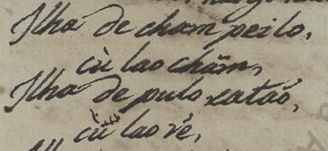 Ilha de champeilo,
cù lao chãm,
Ilha de pulo cataõ,
cù lao ré,